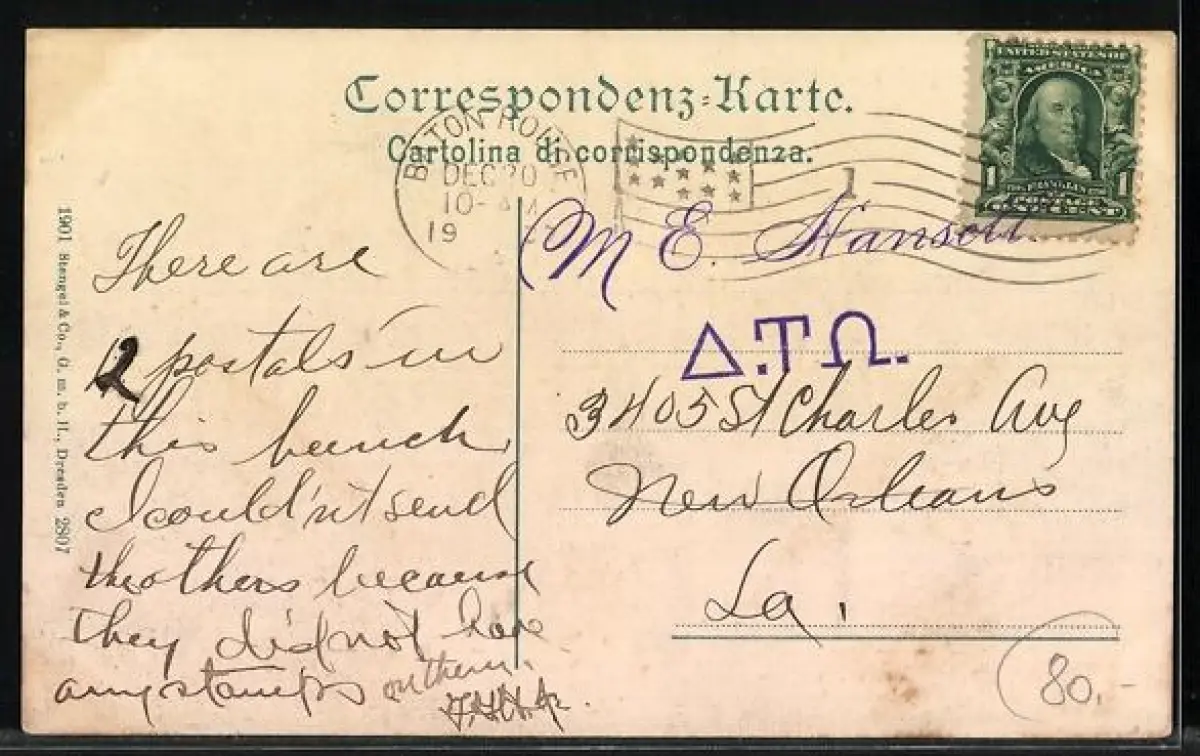 Correspondenz-Karte.
Cartolina di corrispondenza.
BATON ROUGE
DEC 20
10- AM
19
UNITED STATES OF
AMERICA
1 1
POSTAGE
ONE CENT
1901 Stengel & Co., G. m. b. H., Dresden 2807
M E. Hansell.
Δ.Τ Ω.
3405 St Charles Ave
New Orleans
La.
There are
2 postals in
this bunch
I could'n't send
the others because
they did not have
any stamps on them.
80.-